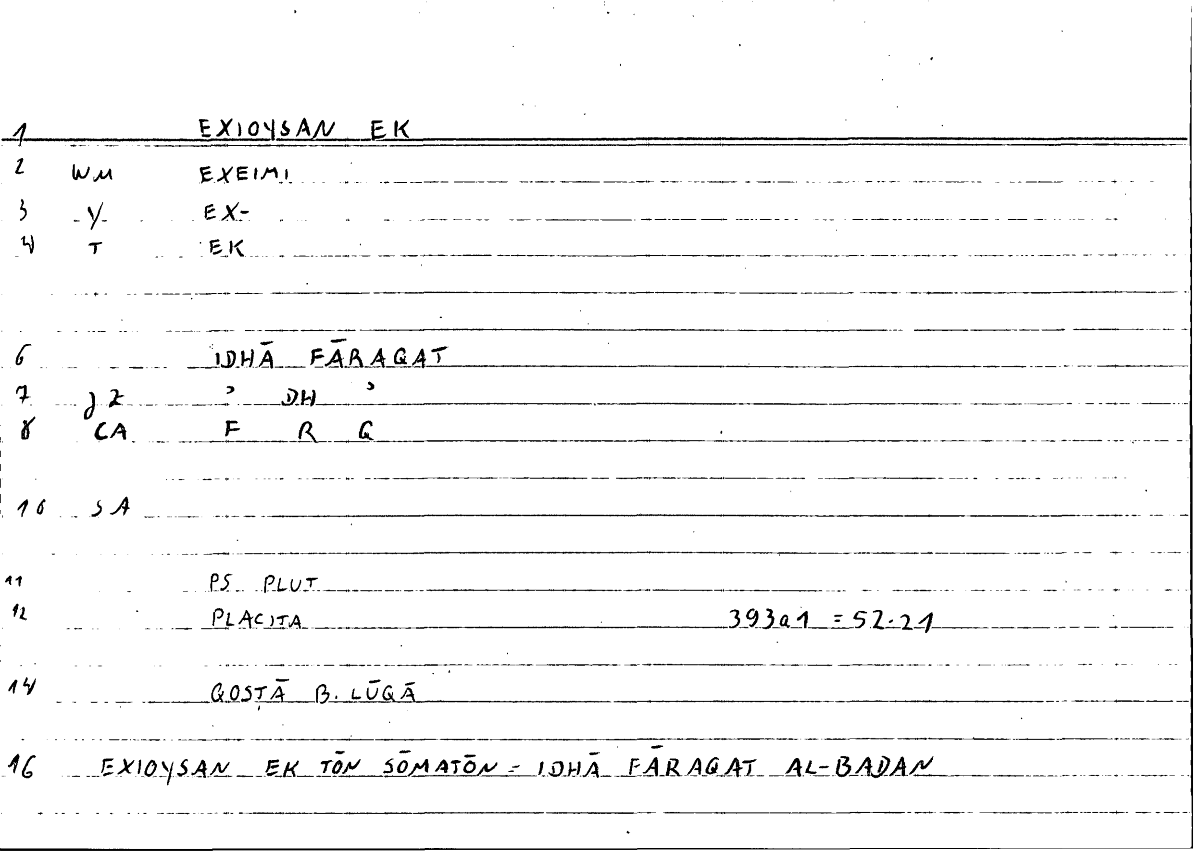 1 EXIOYSAN EK
2 WM EXEIMI
3 Y EX-
4 T EK
6 IDHĀ FĀRAQAT
7 ʾ DH ʾ
8 CA F R Q
10 SA
11 PS PLUT
12 PLACITA 393a1 = 52.21
14 QOSṬĀ B. LŪQĀ
16 EXIOYSAN EK TŌN SŌMATŌN = IDHĀ FĀRAQAT AL-BADAN